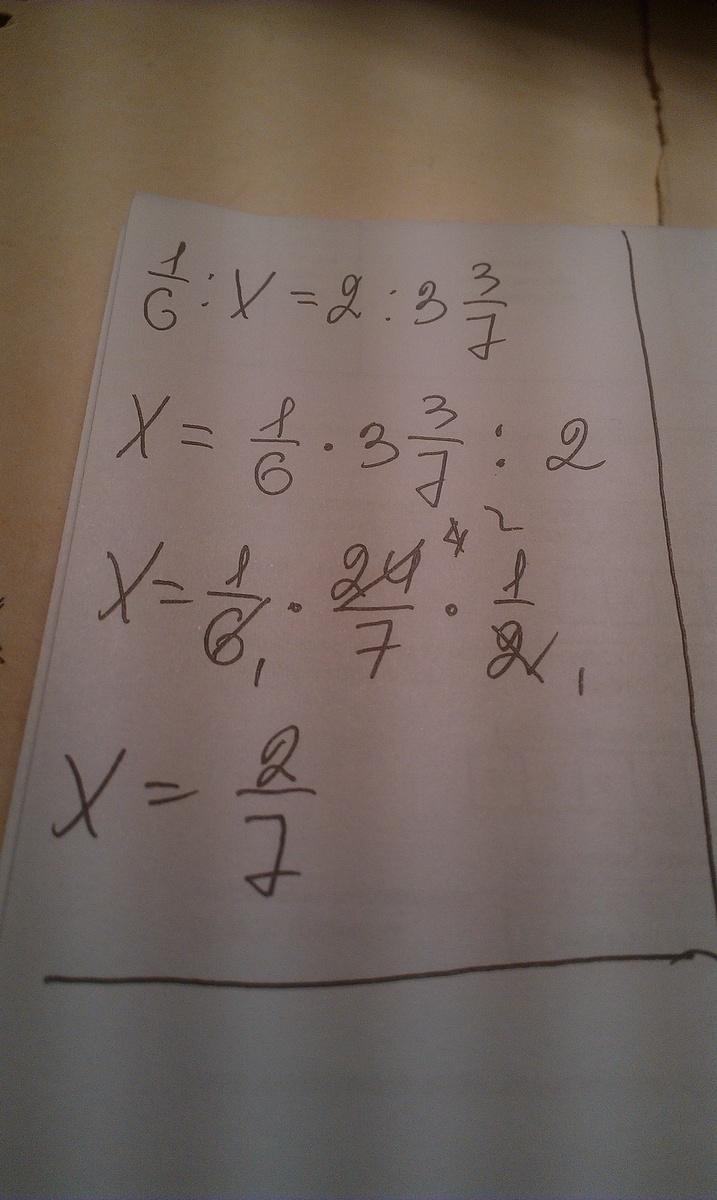 1/6 : X = 2 : 3 3/7
X = 1/6 · 3 3/7 : 2
X = 1/6 1 · 24/7 4 2 · 1/2 1
X = 2/7